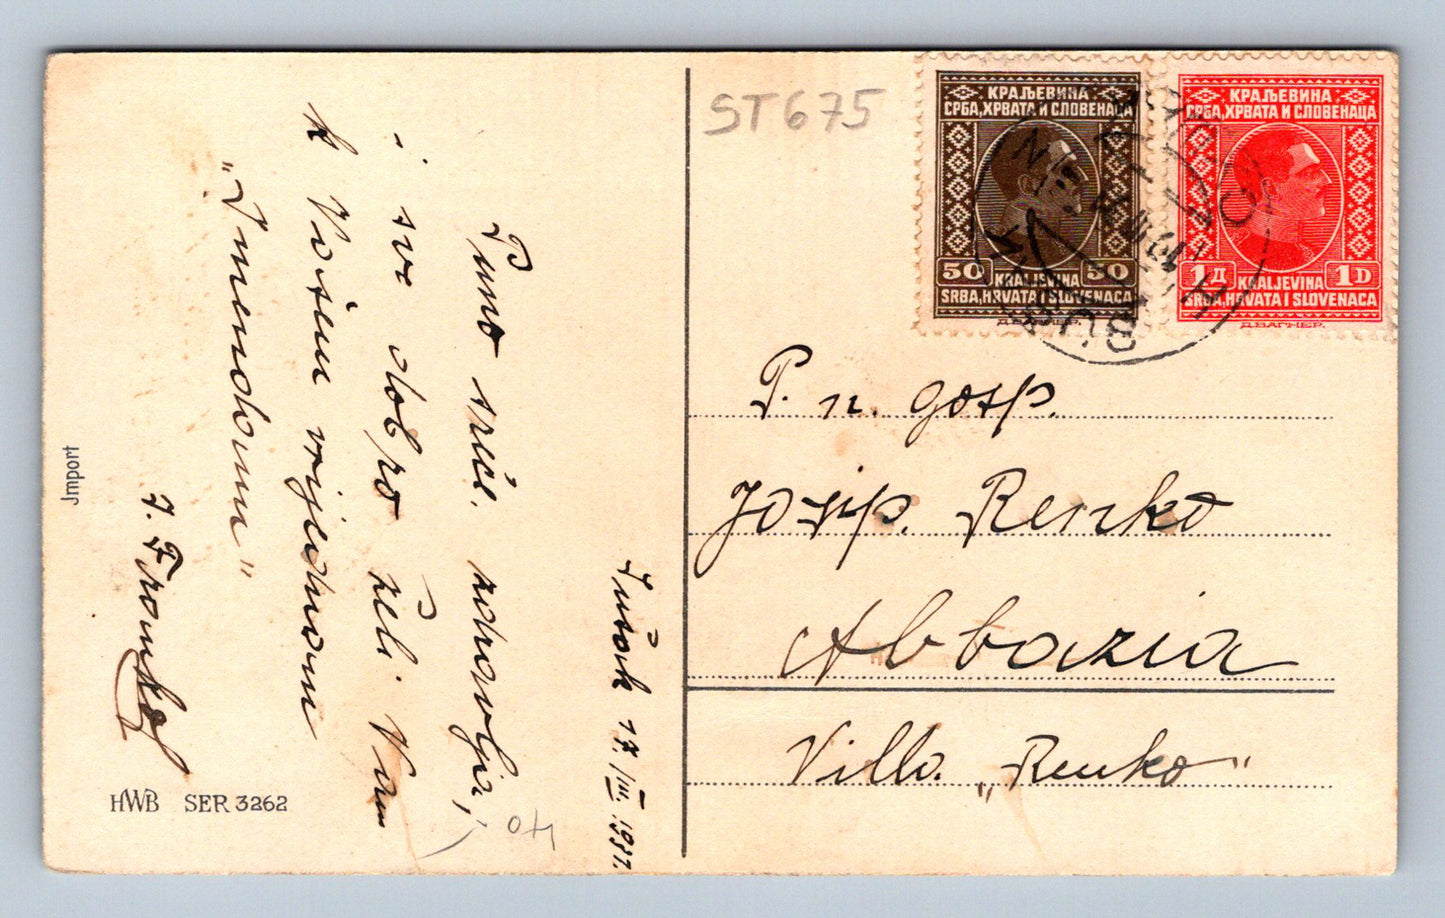 ST675
КРАЉЕВИНА
СРБА, ХРВАТА И СЛОВЕНАЦА
50 50
KRALJEVINA
SRBA, HRVATA I SLOVENACA
КРАЉЕВИНА
СРБА, ХРВАТА И СЛОВЕНАЦА
1Д 1D
KRALJEVINA
SRBA, HRVATA I SLOVENACA
Д.ВАГНЕР.
P. n. gosp.
Josip. Renko
Abbazia
Villa. „Renko"
Sušak 17./III. 1937.
Puno sreće, zdravlja,
i sve dobro želi Vam
k Vašem vrijednom
„Imendanu"
J.
Import
HWB SER 3262
40